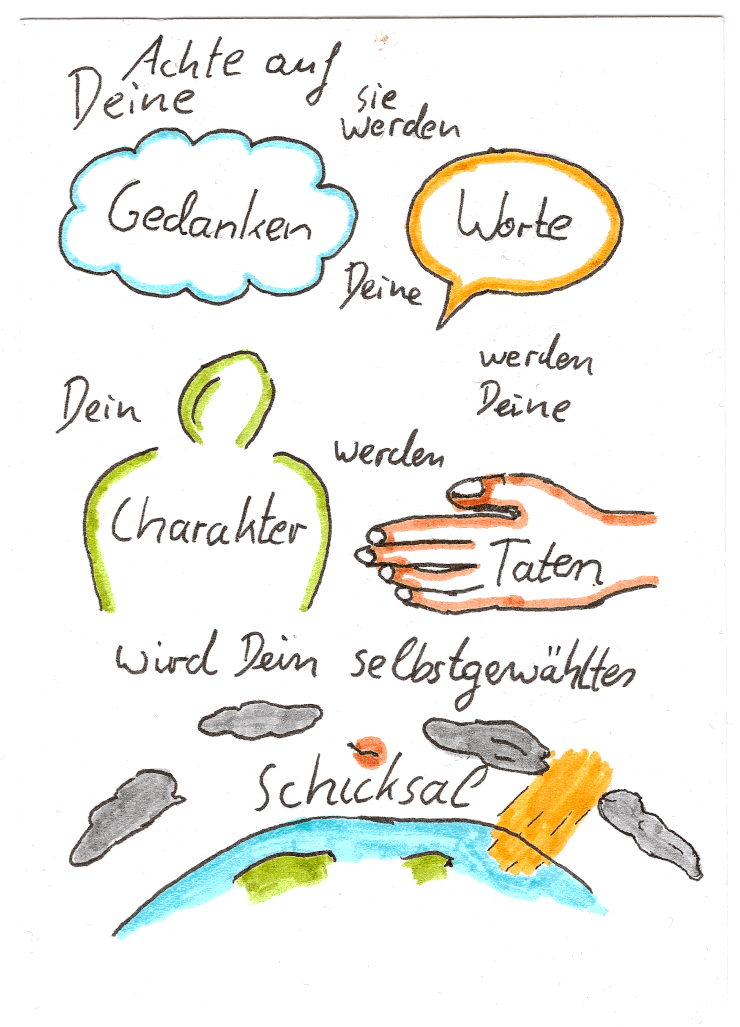 Achte auf
Deine
Gedanken
sie
werden
Deine
Worte
werden
Deine
Taten
werden
Dein
Charakter
wird Dein selbstgewählter
Schicksal